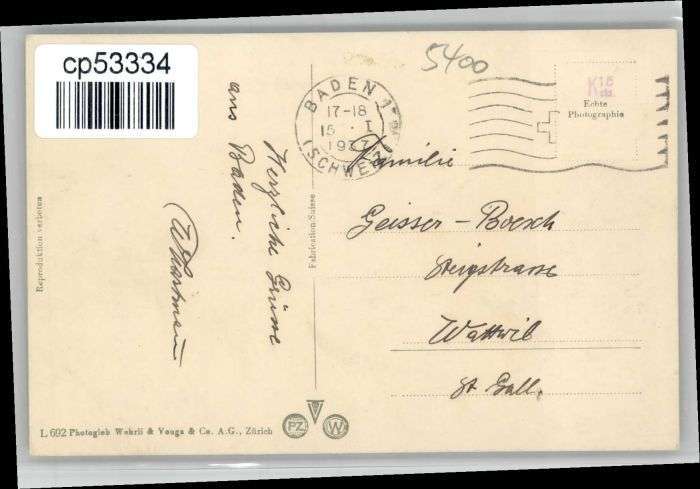 cp53334
5400
BADEN 1
17-18
15. I
1937
(SCHWEIZ)
K 15
Echte
Photographie
Herzliche Grüsse
aus Baden.
Reproduktion verboten
Fabrication Suisse
Familie
Geisser-Boesch
Steigstrasse
Wattwil
St Gall.
L 692 Photoglob Wehrli & Vouga & Co. A.G., Zürich
PZ
W